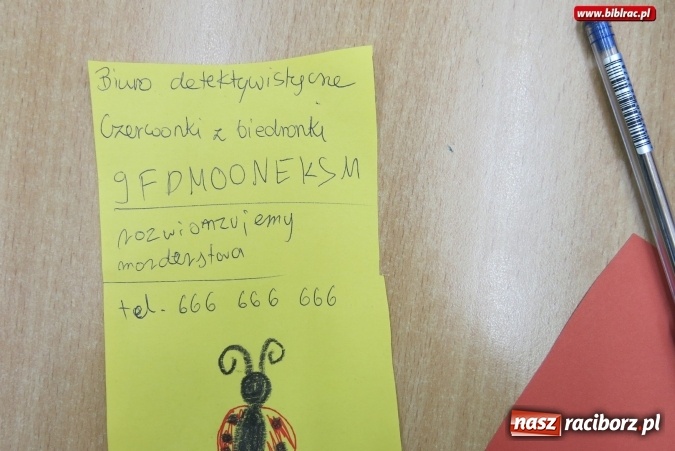 www.biblrac.pl
Biuro detektywistyczne
Czerwonki z biedronki
9FDMOONEKSM
rozwiązujemy
morderstwa
tel. 666 666 666
nasz raciborz.pl